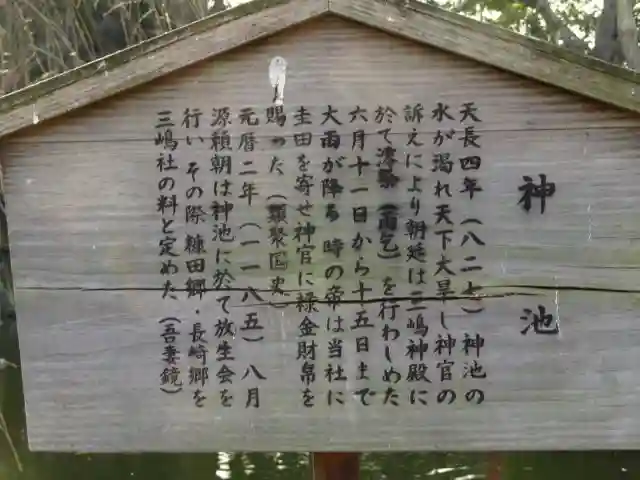 神池
天長四年（八二七）神池の
水が渇れ天下大旱し神官の
訴えにより朝廷は三嶋神殿に
於て（雨乞）を行わしめた
六月十一日から十五日まで
大雨が降る 時の帝は当社に
圭田を寄せ神官に禄金財帛を
賜った（類聚国史）
元暦二年（一一八五）八月
源頼朝は神池に於て放生会を
行い その際 糠田郷・長崎郷を
三嶋社の料と定めた（吾妻鏡）